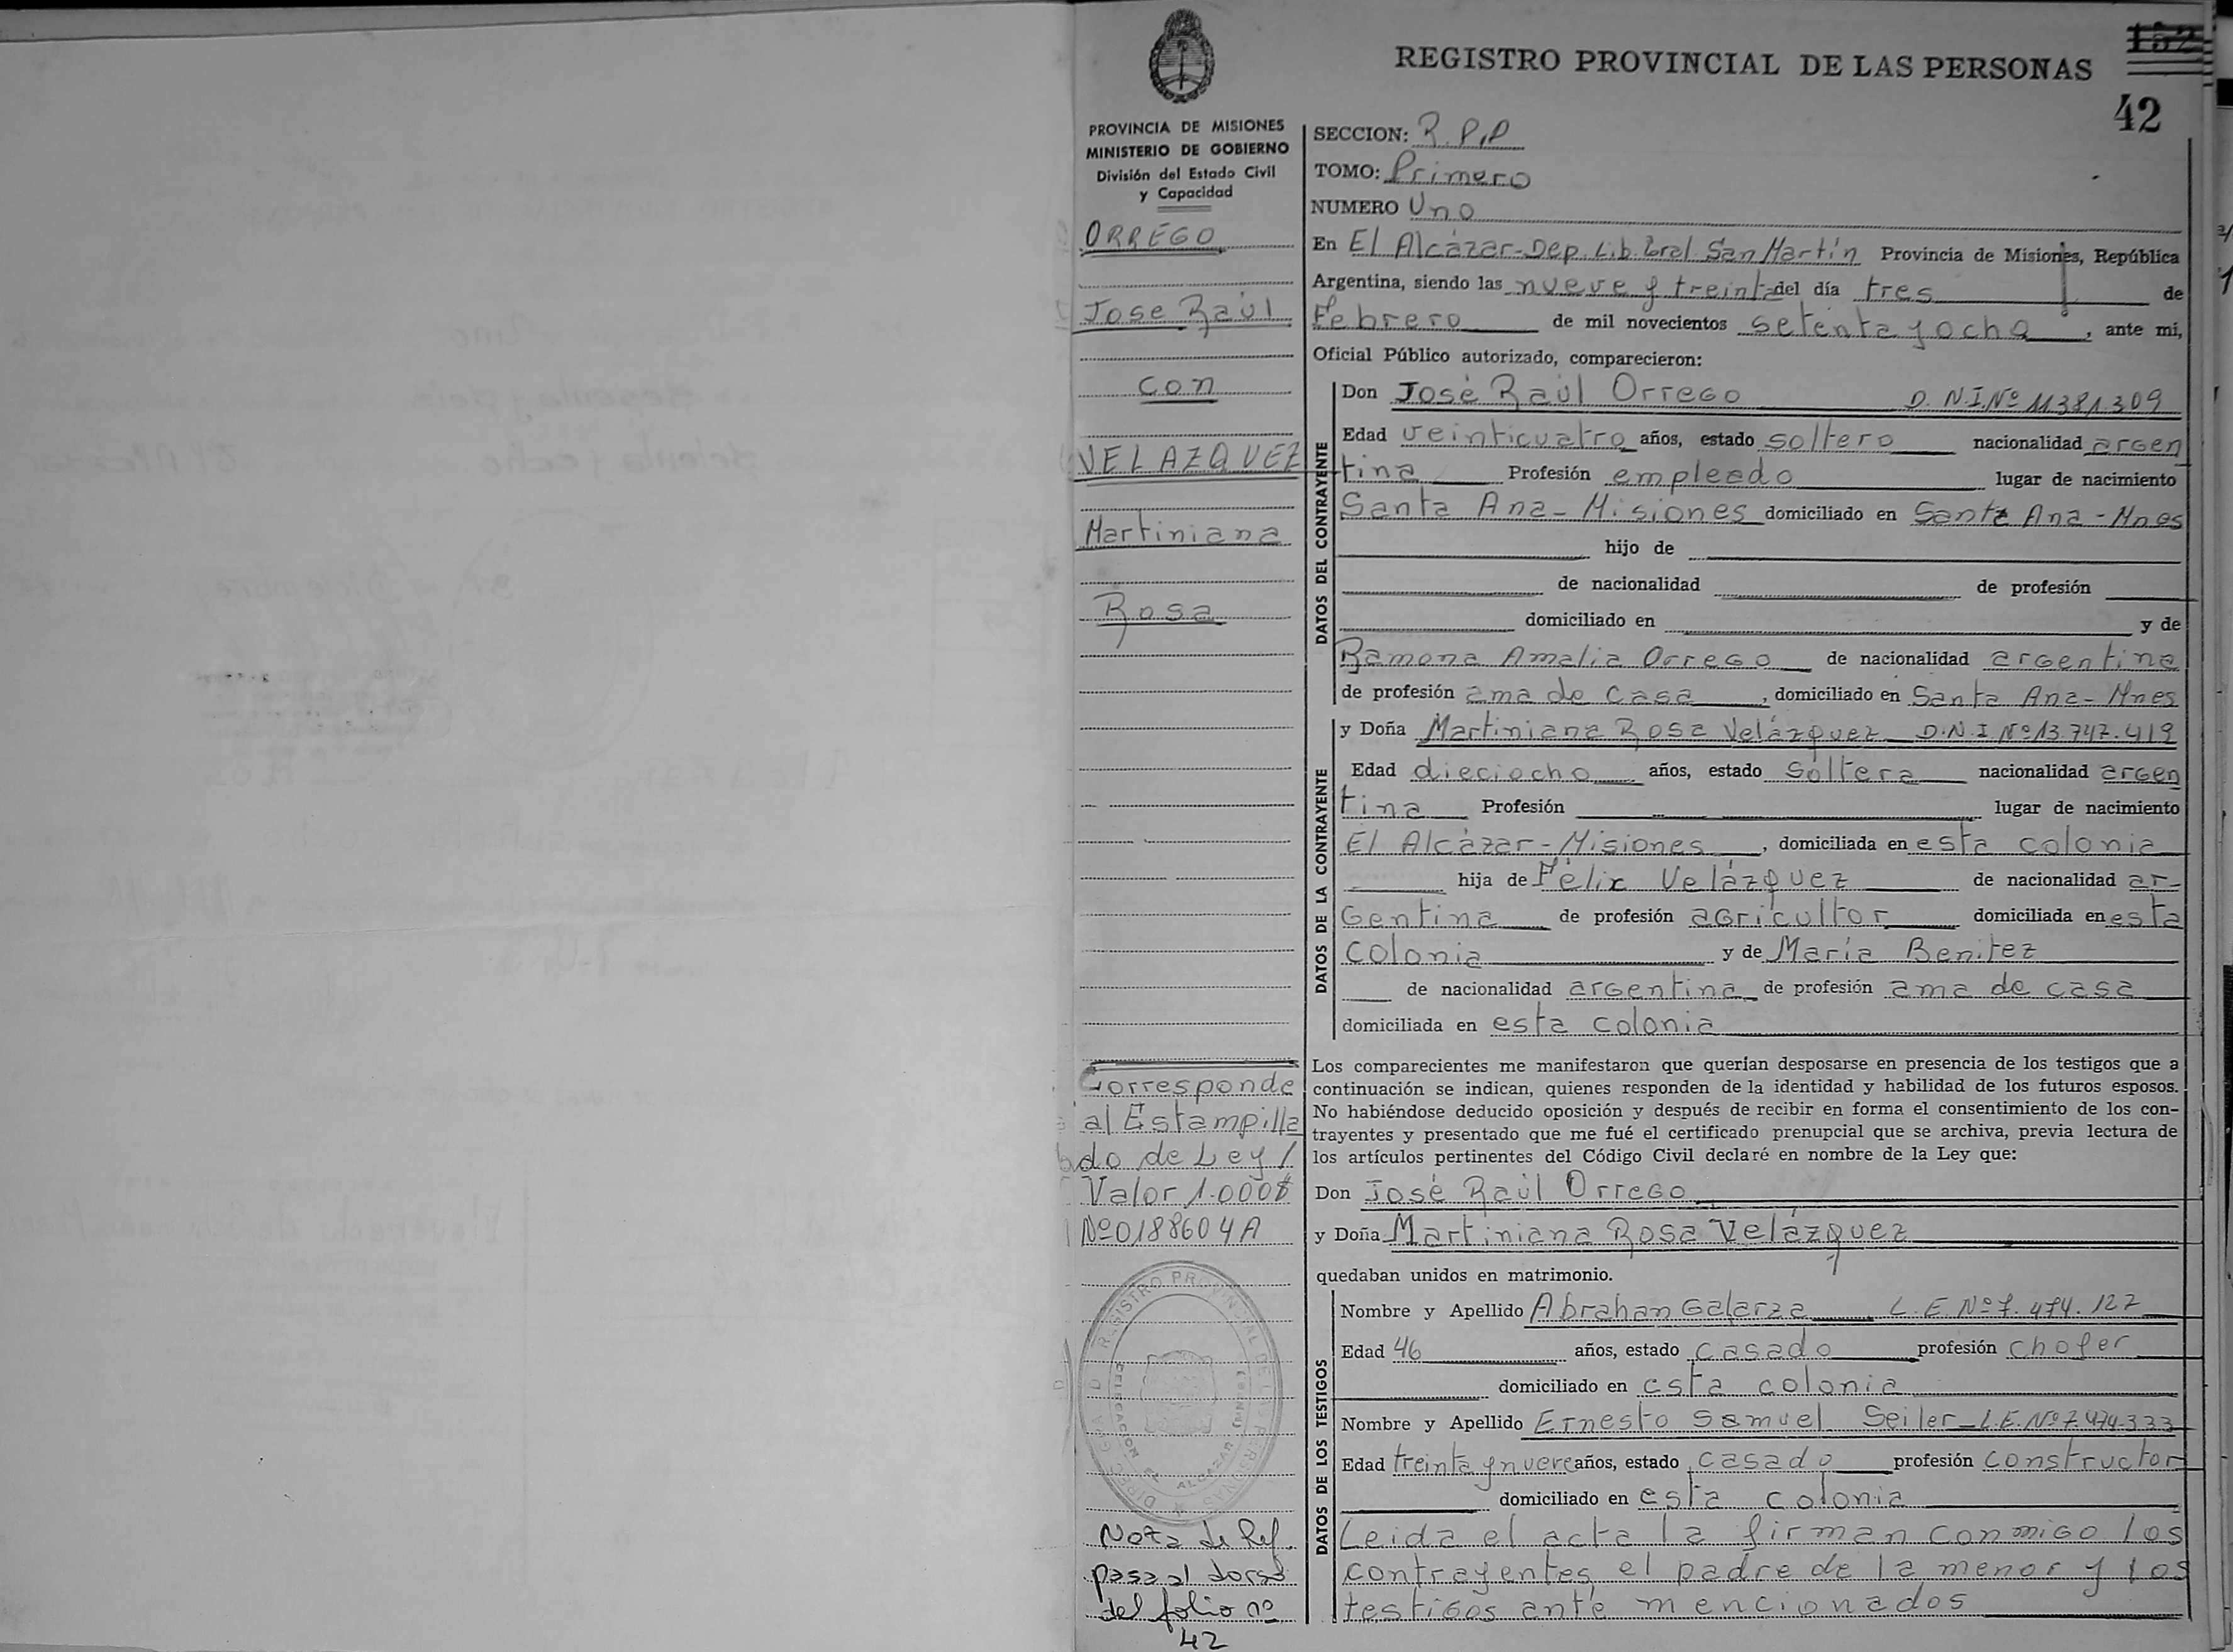 REGISTRO PROVINCIAL DE LAS PERSONAS
152
42
PROVINCIA DE MISIONES
MINISTERIO DE GOBIERNO
División del Estado Civil
y Capacidad
ORREGO
Jose Raúl
con
VELAZQUEZ
Martiniana
Rosa
Corresponde
al Estampilla
do de Ley /
Valor 1.000$
Nº 0188604A
REGISTRO PROVINCIAL DE LAS PERSONAS
DELEGACION EL ALCAZAR
Nota de Ref.
pasa al dorso
del folio nº
42
SECCION: R.P.P
TOMO: Primero
NUMERO Uno
En El Alcázar-Dep. Lib. Gral. San Martín Provincia de Misiones, República
Argentina, siendo las nueve y treinta del día tres de
Febrero de mil novecientos setenta y ocho, ante mi,
Oficial Público autorizado, comparecieron:
DATOS DEL CONTRAYENTE
Don José Raúl Orrego D.N.I.Nº 11381.309
Edad veinticuatro años, estado soltero nacionalidad argen
tina Profesión empleado lugar de nacimiento
Santa Ana-Misiones domiciliado en Santa Ana-Mnes
hijo de
de nacionalidad de profesión
domiciliado en y de
Ramona Amalia Orrego de nacionalidad argentina
de profesión ama de casa, domiciliado en Santa Ana-Mnes
DATOS DE LA CONTRAYENTE
y Doña Martiniana Rosa Velázquez D.N.I.Nº 13.747.419
Edad dieciocho años, estado soltera nacionalidad argen
tina Profesión lugar de nacimiento
El Alcázar-Misiones, domiciliada en esta colonia
hija de Félix Velázquez de nacionalidad ar-
gentina de profesión agricultor domiciliada en esta
colonia y de María Benitez
de nacionalidad argentina de profesión ama de casa
domiciliada en esta colonia
Los comparecientes me manifestaron que querían desposarse en presencia de los testigos que a
continuación se indican, quienes responden de la identidad y habilidad de los futuros esposos.
No habiéndose deducido oposición y después de recibir en forma el consentimiento de los con-
trayentes y presentado que me fué el certificado prenupcial que se archiva, previa lectura de
los artículos pertinentes del Código Civil declaré en nombre de la Ley que:
Don José Raúl Orrego
y Doña Martiniana Rosa Velázquez
quedaban unidos en matrimonio.
DATOS DE LOS TESTIGOS
Nombre y Apellido Abrahan Galarza L.E.Nº 7.474.127
Edad 46 años, estado casado profesión chofer
domiciliado en esta colonia
Nombre y Apellido Ernesto Samuel Seiler-L.E.Nº 7.474.333
Edad treinta y nueve años, estado casado profesión constructor
domiciliado en esta colonia
Leida el acta la firman conmigo los
contrayentes, el padre de la menor y los
testigos ante mencionados